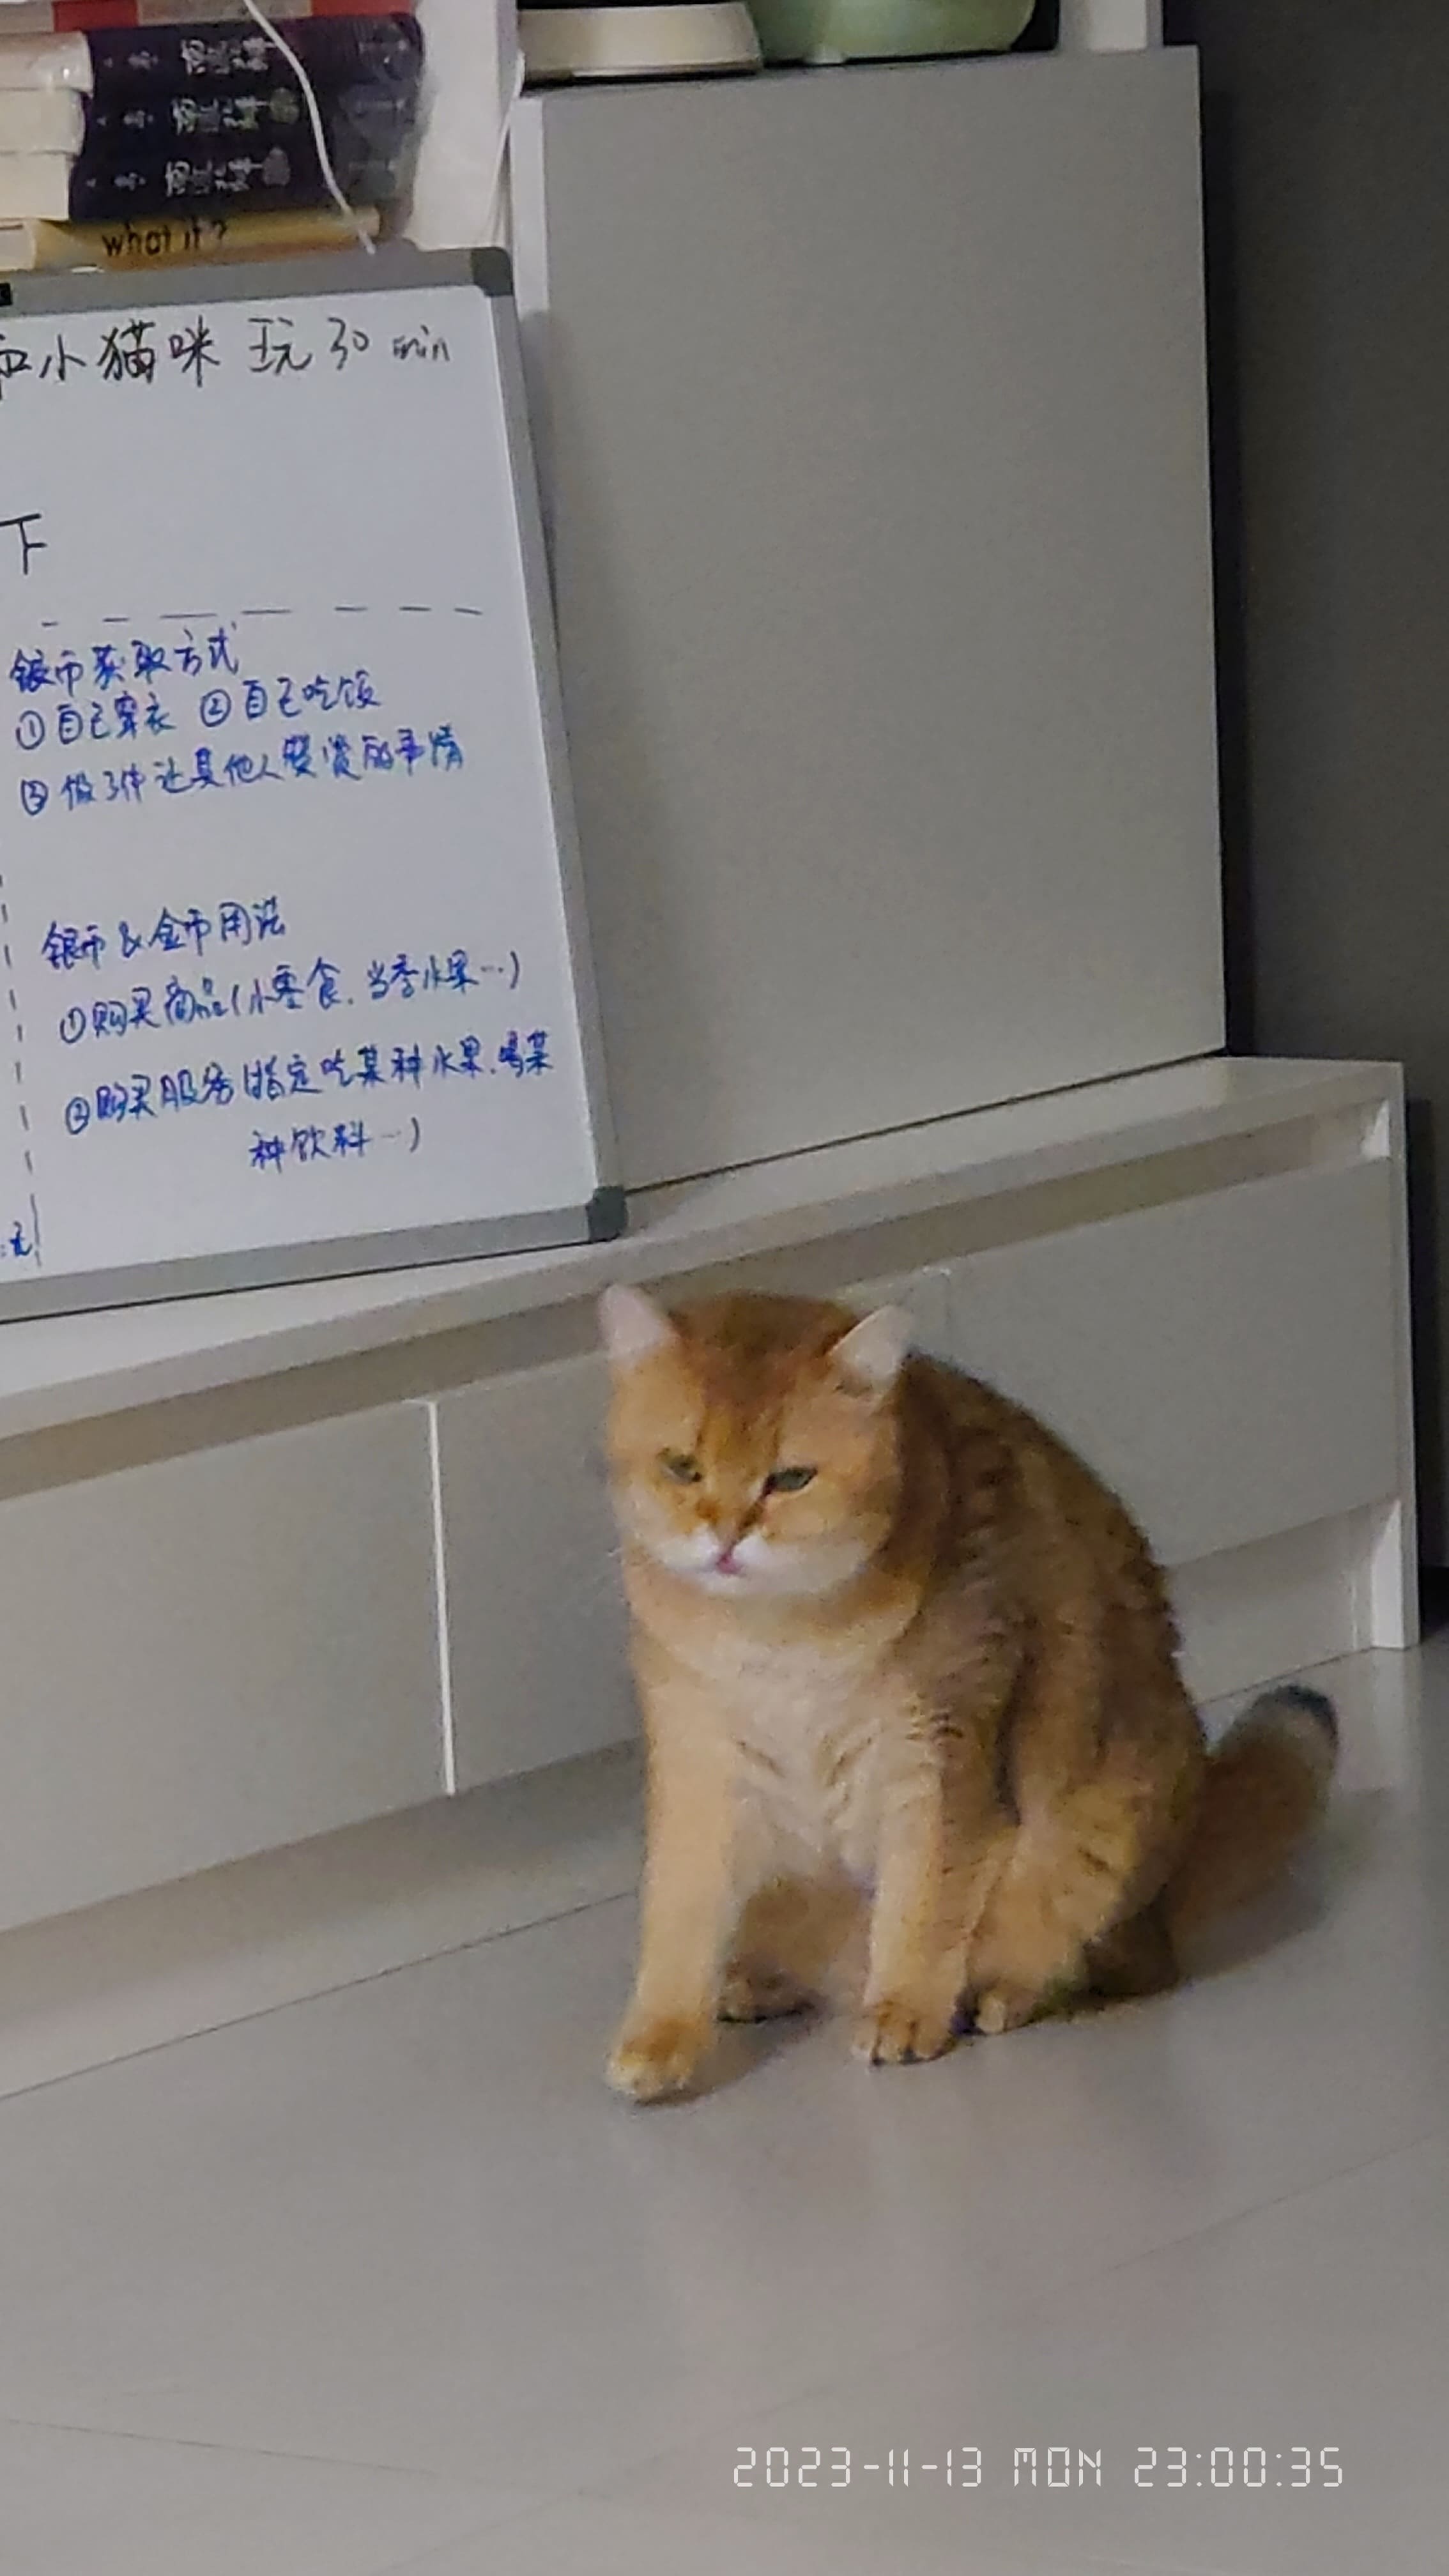 what if?
和小猫咪玩30 min
下
银币获取方式
①自己穿衣 ②自己吃饭
③做了件让其他人赞赏的事情
银币&金币用法
①购买商品(小零食.当季水果…)
②购买服务(指定吃某种水果.喝某
种饮料…)
元
2023-11-13 MON 23:00:35